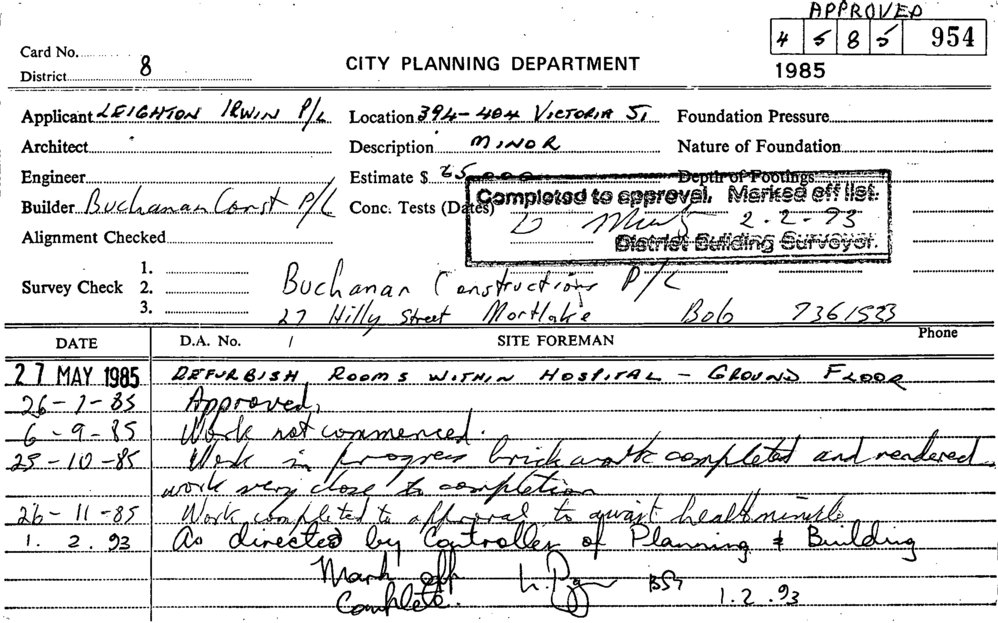 APPROVED
4 5 8 5 954
1985
Card No.
District 8
CITY PLANNING DEPARTMENT
Applicant LEIGHTON IRWIN P/L Location 394-404 VICTORIA ST Foundation Pressure
Architect Description MINOR Nature of Foundation
Engineer Estimate $ 25,000 Depth of Footings
Builder Buchanan Const P/L Conc. Tests (Dates)
Completed to approval. Marked off list.
2-2-93
District Building Surveyor.
Alignment Checked
Survey Check 1.
2.
3.
Buchanan Constructions P/L
27 Hilly Street Mortlake Bob 7361533
DATE D.A. No. SITE FOREMAN Phone
27 MAY 1985 DEFURBISH ROOMS WITHIN HOSPITAL - GROUND FLOOR
26-7-85 Approved.
6-9-85 Work not commenced.
25-10-85 Work in progress brickwork completed and rendered
work very close to completion
26-11-85 Work completed to approval to await health
1.2.93 As directed by Controller of Planning & Building
Mark off
Complete. 1.2.93